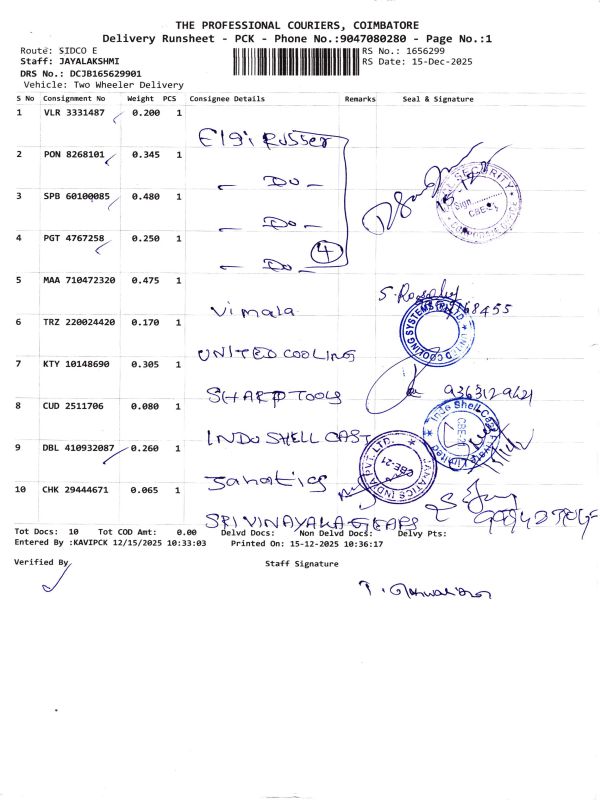 THE PROFESSIONAL COURIERS, COIMBATORE
Delivery Runsheet - PCK - Phone No.:9047080280 - Page No.:1
Route: SIDCO E
RS No.: 1656299
Staff: JAYALAKSHMI
RS Date: 15-Dec-2025
DRS No.: DCJB165629901
Vehicle: Two Wheeler Delivery
S No Consignment No Weight PCS Consignee Details Remarks Seal & Signature
1 VLR 3331487 0.200 1 Elgi Rubber
2 PON 8268101 0.345 1 - Do -
3 SPB 60100085 0.480 1 - Do -
4 PGT 4767258 0.250 1 - Do - 4
SECURITY
Sign
CBE
CORPORATE OFFICE
5 MAA 710472320 0.475 1 Vimala
6 TRZ 220024420 0.170 1 UNITED COOLING
UNITED COOLING SYSTEMS (P) LTD
7 KTY 10148690 0.305 1 SHARP TOOLS
8 CUD 2511706 0.080 1 INDO SHELL CAST
Indo Shell Cast Private Limited
9 DBL 410932087 0.260 1 Janatics
JANATICS INDIA PVT. LTD.
CBE-21
10 CHK 29444671 0.065 1 SRI VINAYAKA GEARS
Tot Docs: 10 Tot COD Amt: 0.00 Delvd Docs: Non Delvd Docs: Delvy Pts:
Entered By :KAVIPCK 12/15/2025 10:33:03 Printed On: 15-12-2025 10:36:17
Verified By
Staff Signature